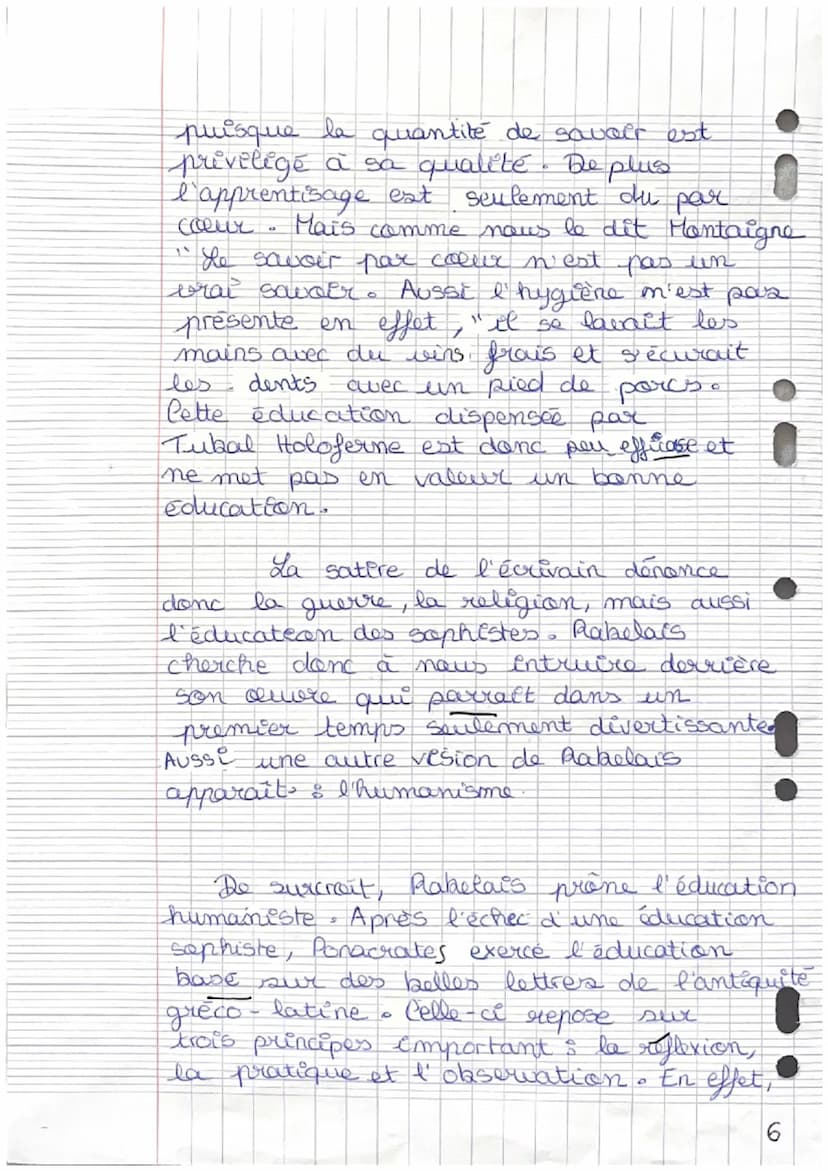 puisque la quantité de savoir est
privilégé à sa qualité. De plus
l'apprentisage est seulement du par
coeur. Mais comme nous le dit Montaigne
" Le savoir par coeur n'est pas un
vrai savoir. Aussi l'hygiène n'est pas
présente en effet, "il se lavait les
mains avec du vins frais et s'écurait
les dents avec un pied de porcs.
Cette éducation dispensée par
Tubal Holoferne est donc peu efficase et
ne met pas en valeur un bonne
éducation.
La satire de l'écrivain dénonce
donc la guerre, la religion, mais aussi
l'éducation des sophistes. Rabelais
cherche donc à nous intruire derrière
son œuvre qui parraît dans un
premier temps seulement divertissante
Aussi une autre vision de Rabelais
apparaît : l'humanisme.
De surcroît, Rabelais prône l'éducation
humainiste. Après l'échec d'une éducation
sophiste, Ponacrates exerce l'éducation
basé sur des belles lettres de l'antiquité
gréco-latine. Celle-ci repose sur
trois principes important : la réflexion,
la pratique et l'observation. En effet,
6